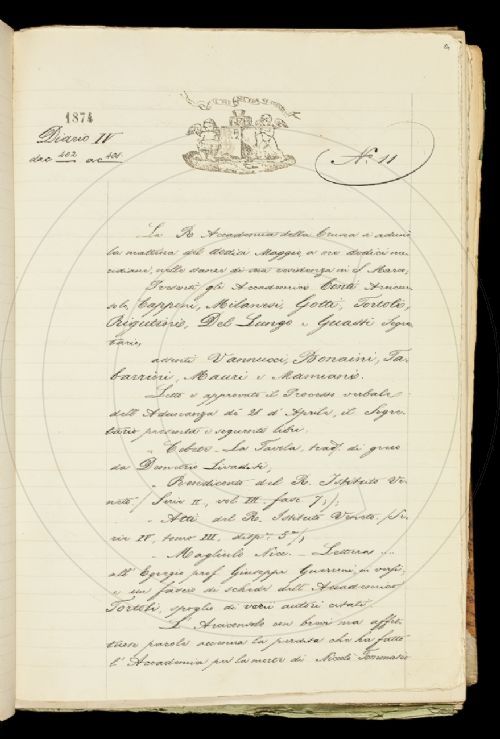 1874
Diario IV
dac 402 ac 401
N.° 11
La R. Accademia della Crusca si adunò
la mattina del dodici Maggio, a ore dodici me-
ridiane, nelle stanze di sua residenza in S. Marco,
Presenti gli Accademici Conti, Arcicon-
solo, Capponi, Milanesi, Gotti, Tortoli,
Rigutini, Del Lungo e Guasti Segre-
tario,
assenti Vannucci, Bonaini, Ta-
barrini, Mauri e Mamiani.
Letto e approvato il Processo verbale
dell'Adunanza di 28 d'Aprile, il Segre-
tario presenta i seguenti libri.
" Cebete - La Tavola, trad. di greco
da Demetrio Livaditi,
" Rendiconto del R. Istituto Ve-
neto / Serie II, vol. III. fasc. 7,/;
" Atti del R. Istituto Veneto /Se-
rie IV, tomo III, disp.ª 5.ª/;
" Magliulo Nic. - Lettura
all'Egregio prof. Giuseppe Guerzoni, in versi,
e un fascio di schede dell'Accademico
Tortoli, spoglio di varii autori citati.
L'Arciconsolo con brevi ma affet-
tuose parole accenna la perdita che ha fatto
l'Accademia per la morte di Nicolò Tommaseo